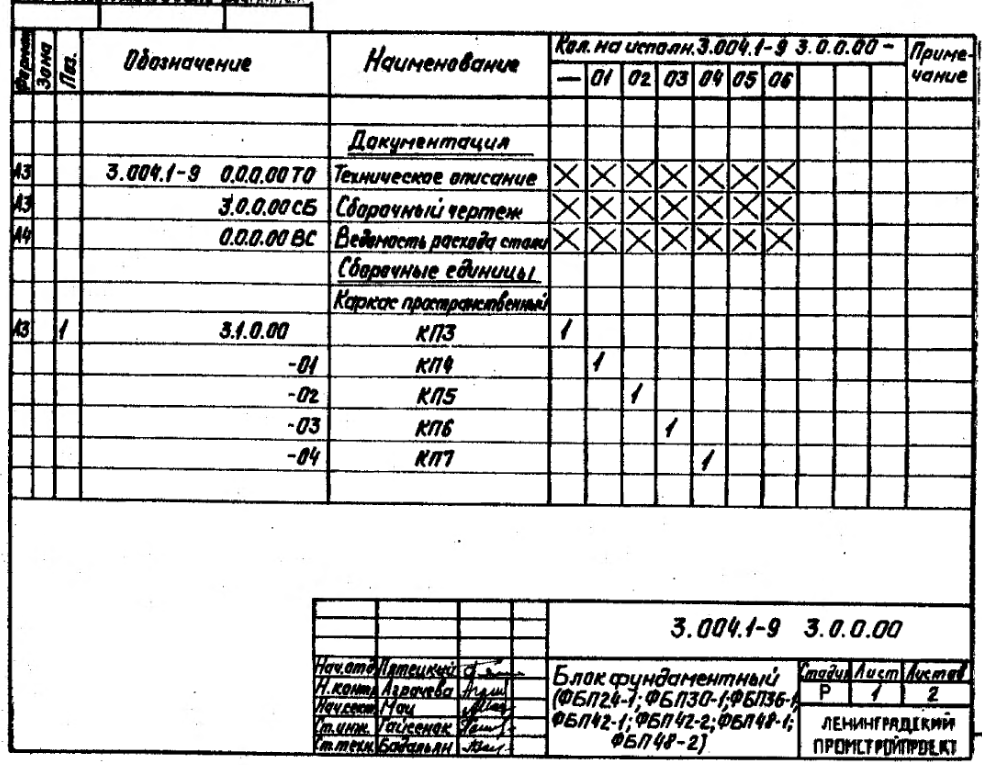 Формат Зона Поз. Обозначение Наименование Кол. на исполн. 3.004.1-9 3.0.0.00 - Приме-
— 01 02 03 04 05 06 чание
Документация
А3 3.004.1-9 0.0.0.00 ТО Техническое описание X X X X X X X
А3 3.0.0.00 СБ Сборочный чертеж X X X X X X X
А4 0.0.0.00 ВС Ведомость расхода стали X X X X X X X
Сборочные единицы
Каркас пространственный
А3 1 3.1.0.00 КП3 1
-01 КП4 1
-02 КП5 1
-03 КП6 1
-04 КП7 1
3.004.1-9 3.0.0.00
Нач.отд
Н.контр Азрачева
Нач.сект Мац
Ст.инж. Гайсенок
Ст.техн Бадальян
Блок фундаментный
(ФБП24-1; ФБП30-1; ФБП36-1;
ФБП42-1; ФБП42-2; ФБП48-1;
ФБП48-2)
Стадия Лист Листов
Р 1 2
ЛЕНИНГРАДСКИЙ
ПРОМСТРОЙПРОЕКТ